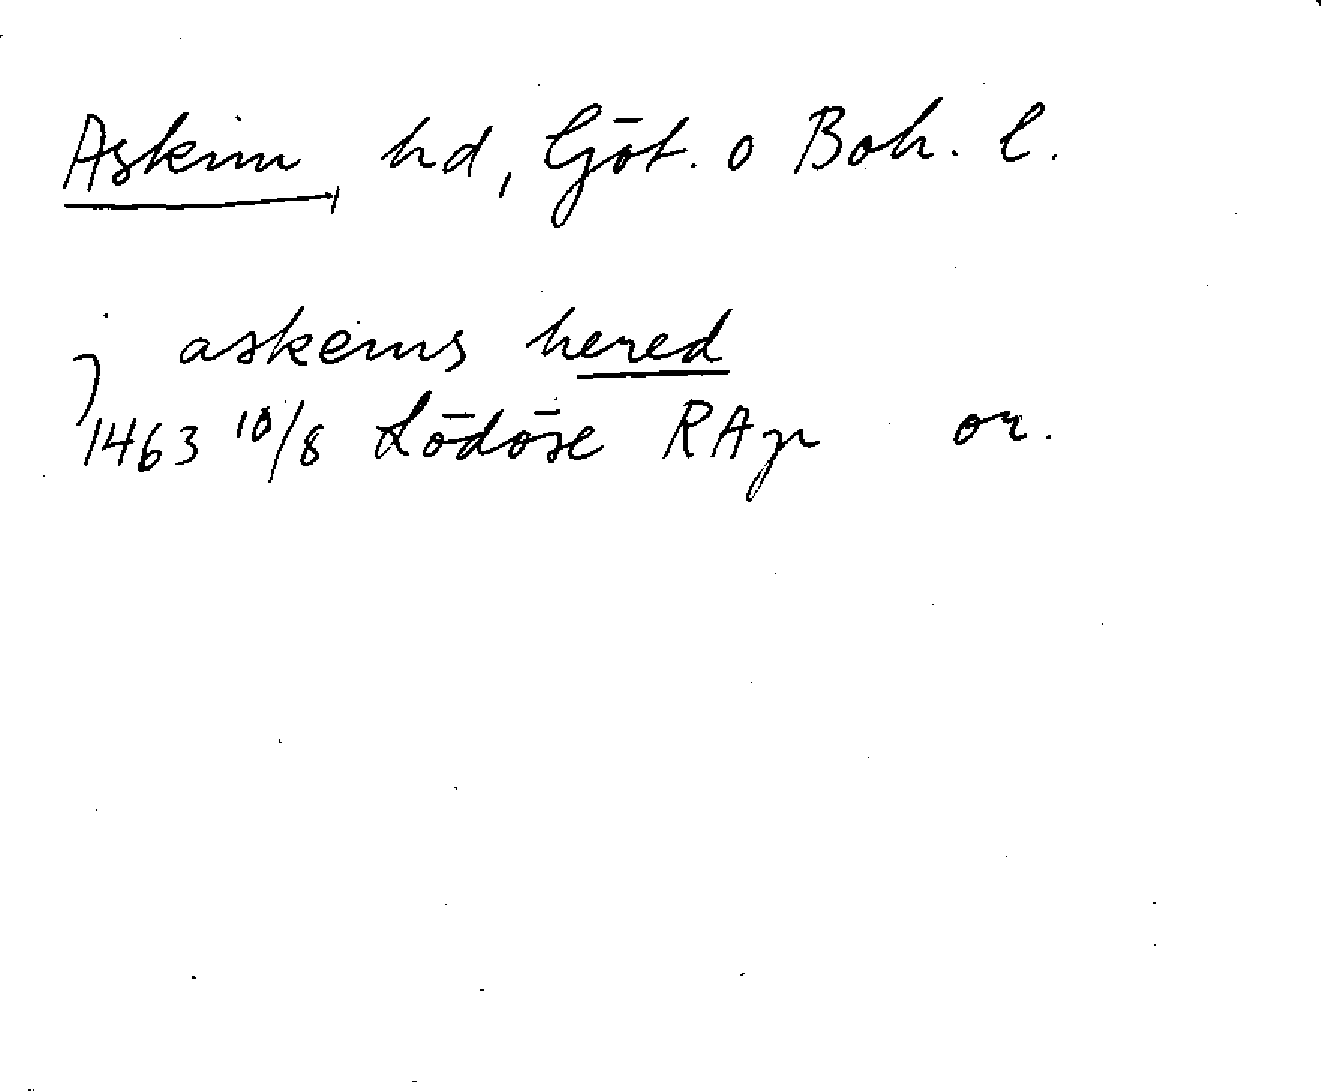 Askim, hd, Göt. o Boh. l.
j askems hered
1463 10/8 Lödöse RAp or.